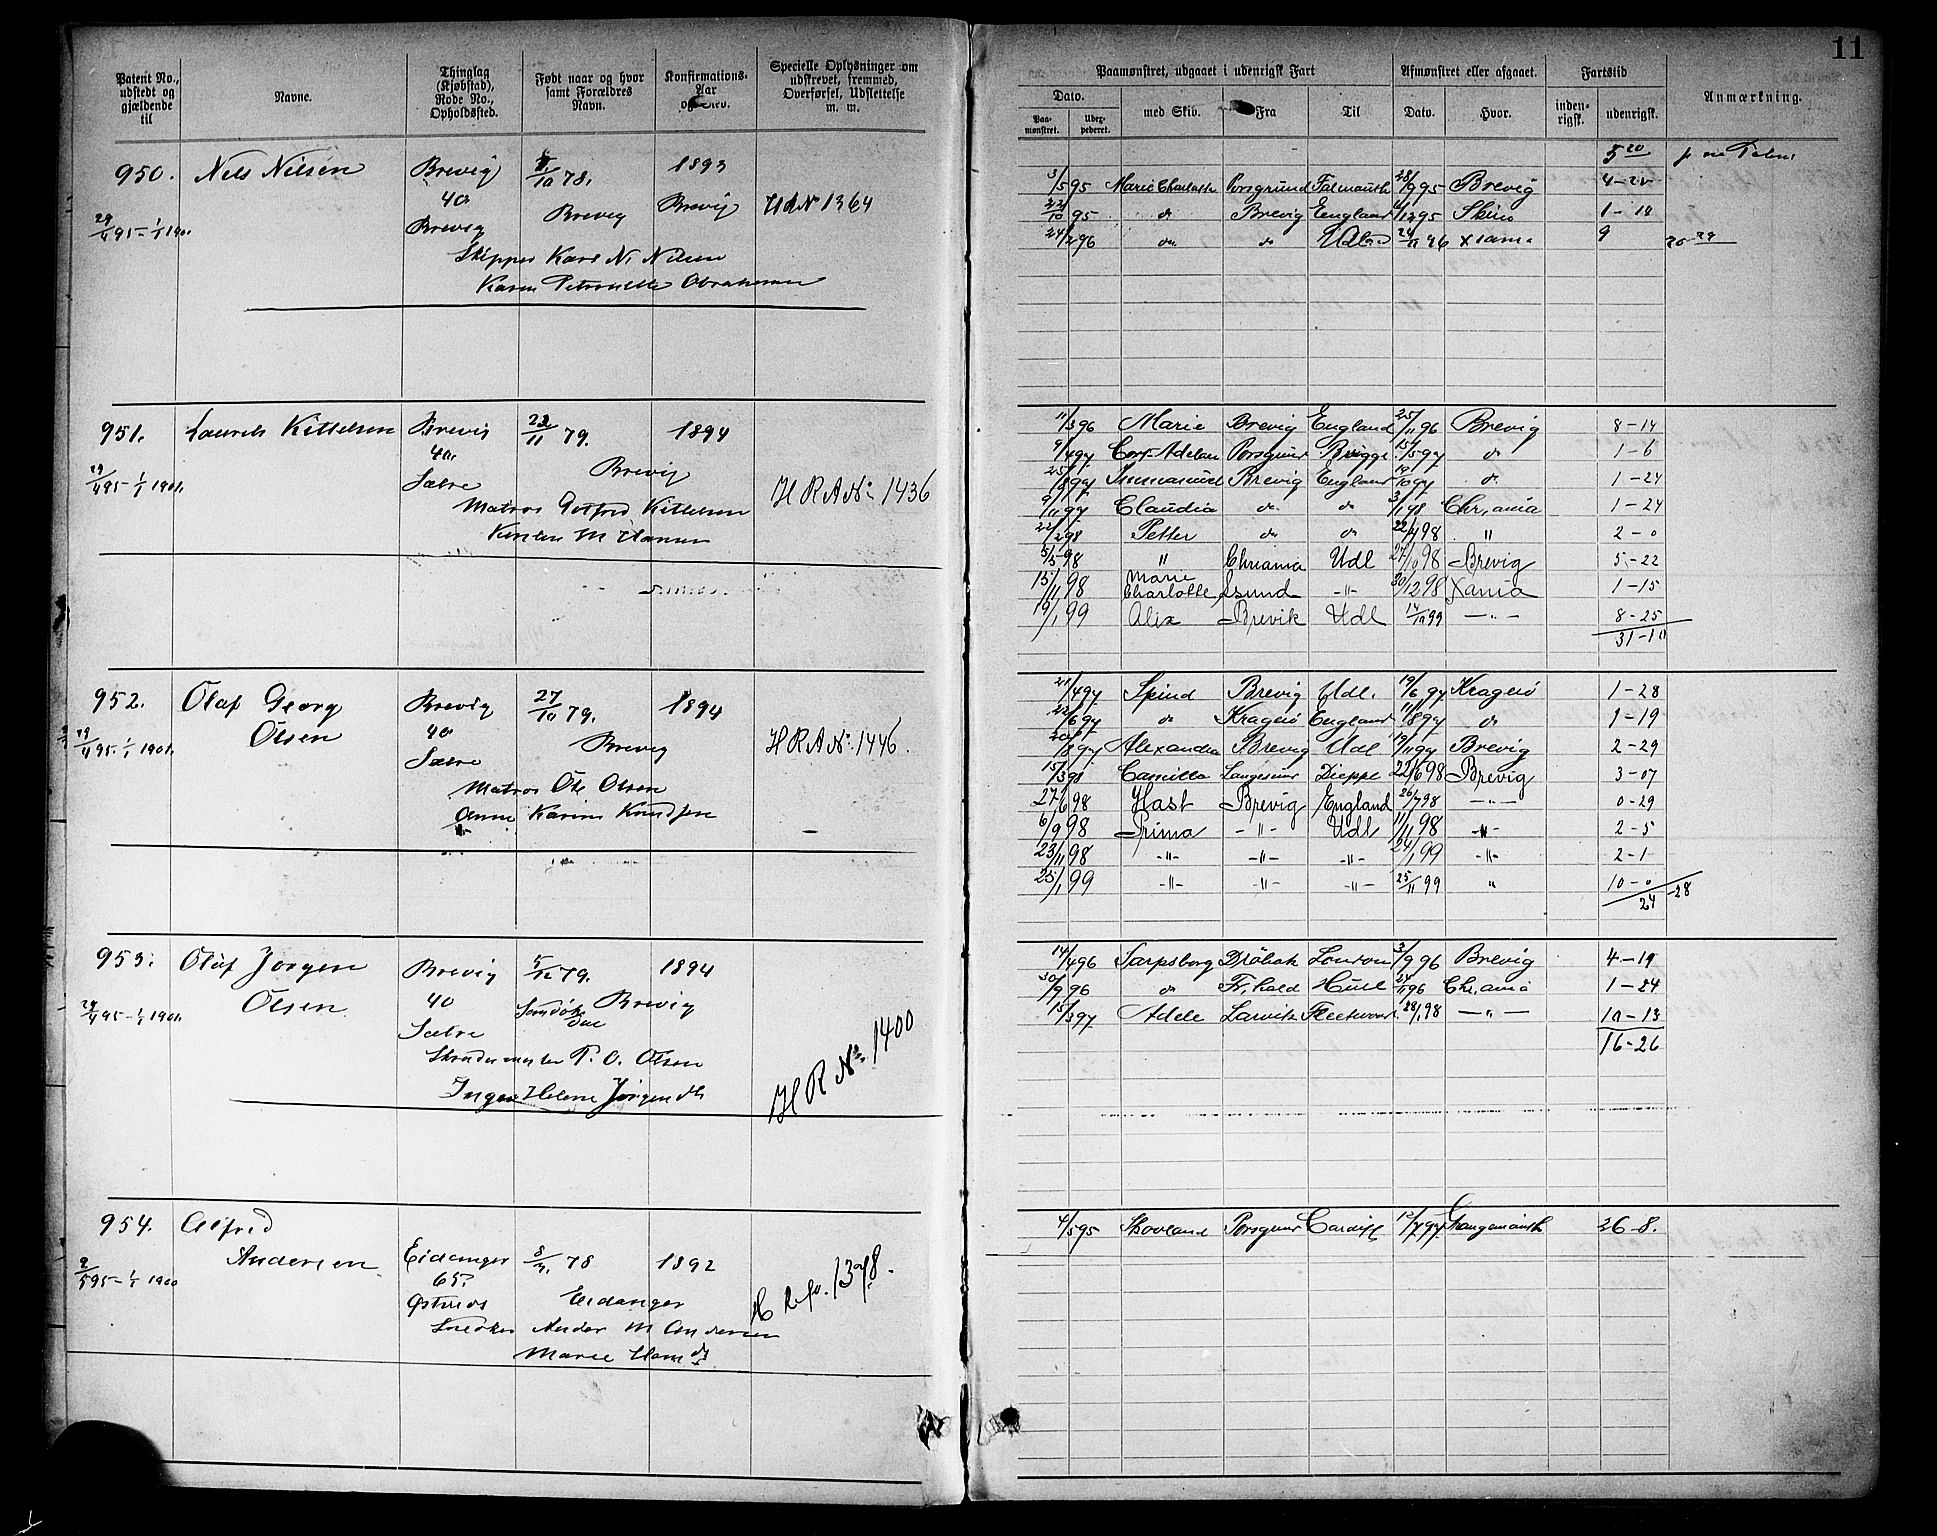 11
Patent No., udstedt og gjældende til
Navne.
Thinglag (Kjøbstad), Rode No., Opholdssted.
Født naar og hvor samt Forældres Navn.
Konfirmations-Aar
Specielle Oplysninger om udskrevet, fremmed, Overførsel, Udslettelse m. m.
Paamønstret, udgaaet i udenrigsk Fart
Afmønstret eller afgaaet.
Fartstid
Anmærkning.
Dato.
Paa-mønstret.
Udex-pederet.
med Skib.
Fra
Til
Dato.
Hvor.
inden-rigsk.
udenrigsk.
950. Nils Nilsen Brevig 78. 1893
40
Brevig Brevig
29/4 95 - 1/1 1901 Brevig
Skipper Karl N. Nilsen
5 20
3/5 95 Marie Charlotte Porsgrund Falmouth 28/9 95 Brevig
22/10 95 do Brevig England 95 1 - 14
24/2 96 do do 9
951. Laurits Kittelsen Brevig 22/11 79. 1894
Brevig
29/4 95 - 1/1 1901. Sætre
Matros Gotfred Kittelsen
H R A No 1436
11/3 96 Marie Brevig England 25/11 96 Brevig 8 - 14
9/4 97 Cort Adelaer Porsgrund Brügge 15/5 97 do 1 - 6
Immanuel Brevig England 19/10 97 do 1 - 24
9/11 97 Claudia do do 3/1 98 Chr,ania 1 - 24
22/2 98 Petter do do 22/4 98 " 2 - 0
5/5 98 " Chriania Udl 27/9 98 Brevig 5 - 22
15/11 98 Marie Charlotte -"- 30/12 98 Xania 1 - 15
19/1 99 Alix Brevik Udl 14/10 99 -"- 8 - 25
31 - 10
952. Olaf Georg Olsen Brevig 27/10 79. 1894
40
29/4 95 - 1/1 1901. Sætre Brevig
Matros Ole Olsen
Anne Karine Knudsen
H R A No. 1446.
21/4 97 Spind Brevig Udl. 19/6 97 Kragerö 1 - 28
22/6 97 do Kragerö England 11/8 97 do 1 - 19
20/8 97 Alexandra Brevig Udl 19/11 97 Brevig 2 - 29
15/3 98 Camilla Langesund Dieppe 22/6 98 Brevig 3 - 07
27/6 98 Hast Brevig England 26/7 98 -"- 0 - 29
6/9 98 Prima -"- Udl 11/11 98 -"- 2 - 5
23/11 98 -"- -"- -"- 24/1 99 -"- 2 - 1
25/1 99 -"- -"- -"- 25/11 99 " 10 - 0
24 - 28
953. Olaf Jørgen Olsen Brevig 79. 1894
40
29/4 95 - 1/1 1901. Sætre Brevig
Skrædermester P. O. Olsen
Inger Helene Jørgensdt
H R No. 1400
14/4 96 Sarpsborg Dröbak London 3/9 96 Brevig 4 - 19
30/9 96 do Fr,hald Hull 24/11 96 Chr,ania 1 - 24
15/3 97 Adele Larvik Fleetwood 28/1 98 -"- 10 - 13
16 - 26
954. Alfred Andersen Eidanger 78 1892
65
2/5 95 - 1/1 1900 Eidanger
Snedker Anders M Andersen
1398.
4/5 95 Skovland Porsgrund Cardiff 97 26 - 8.